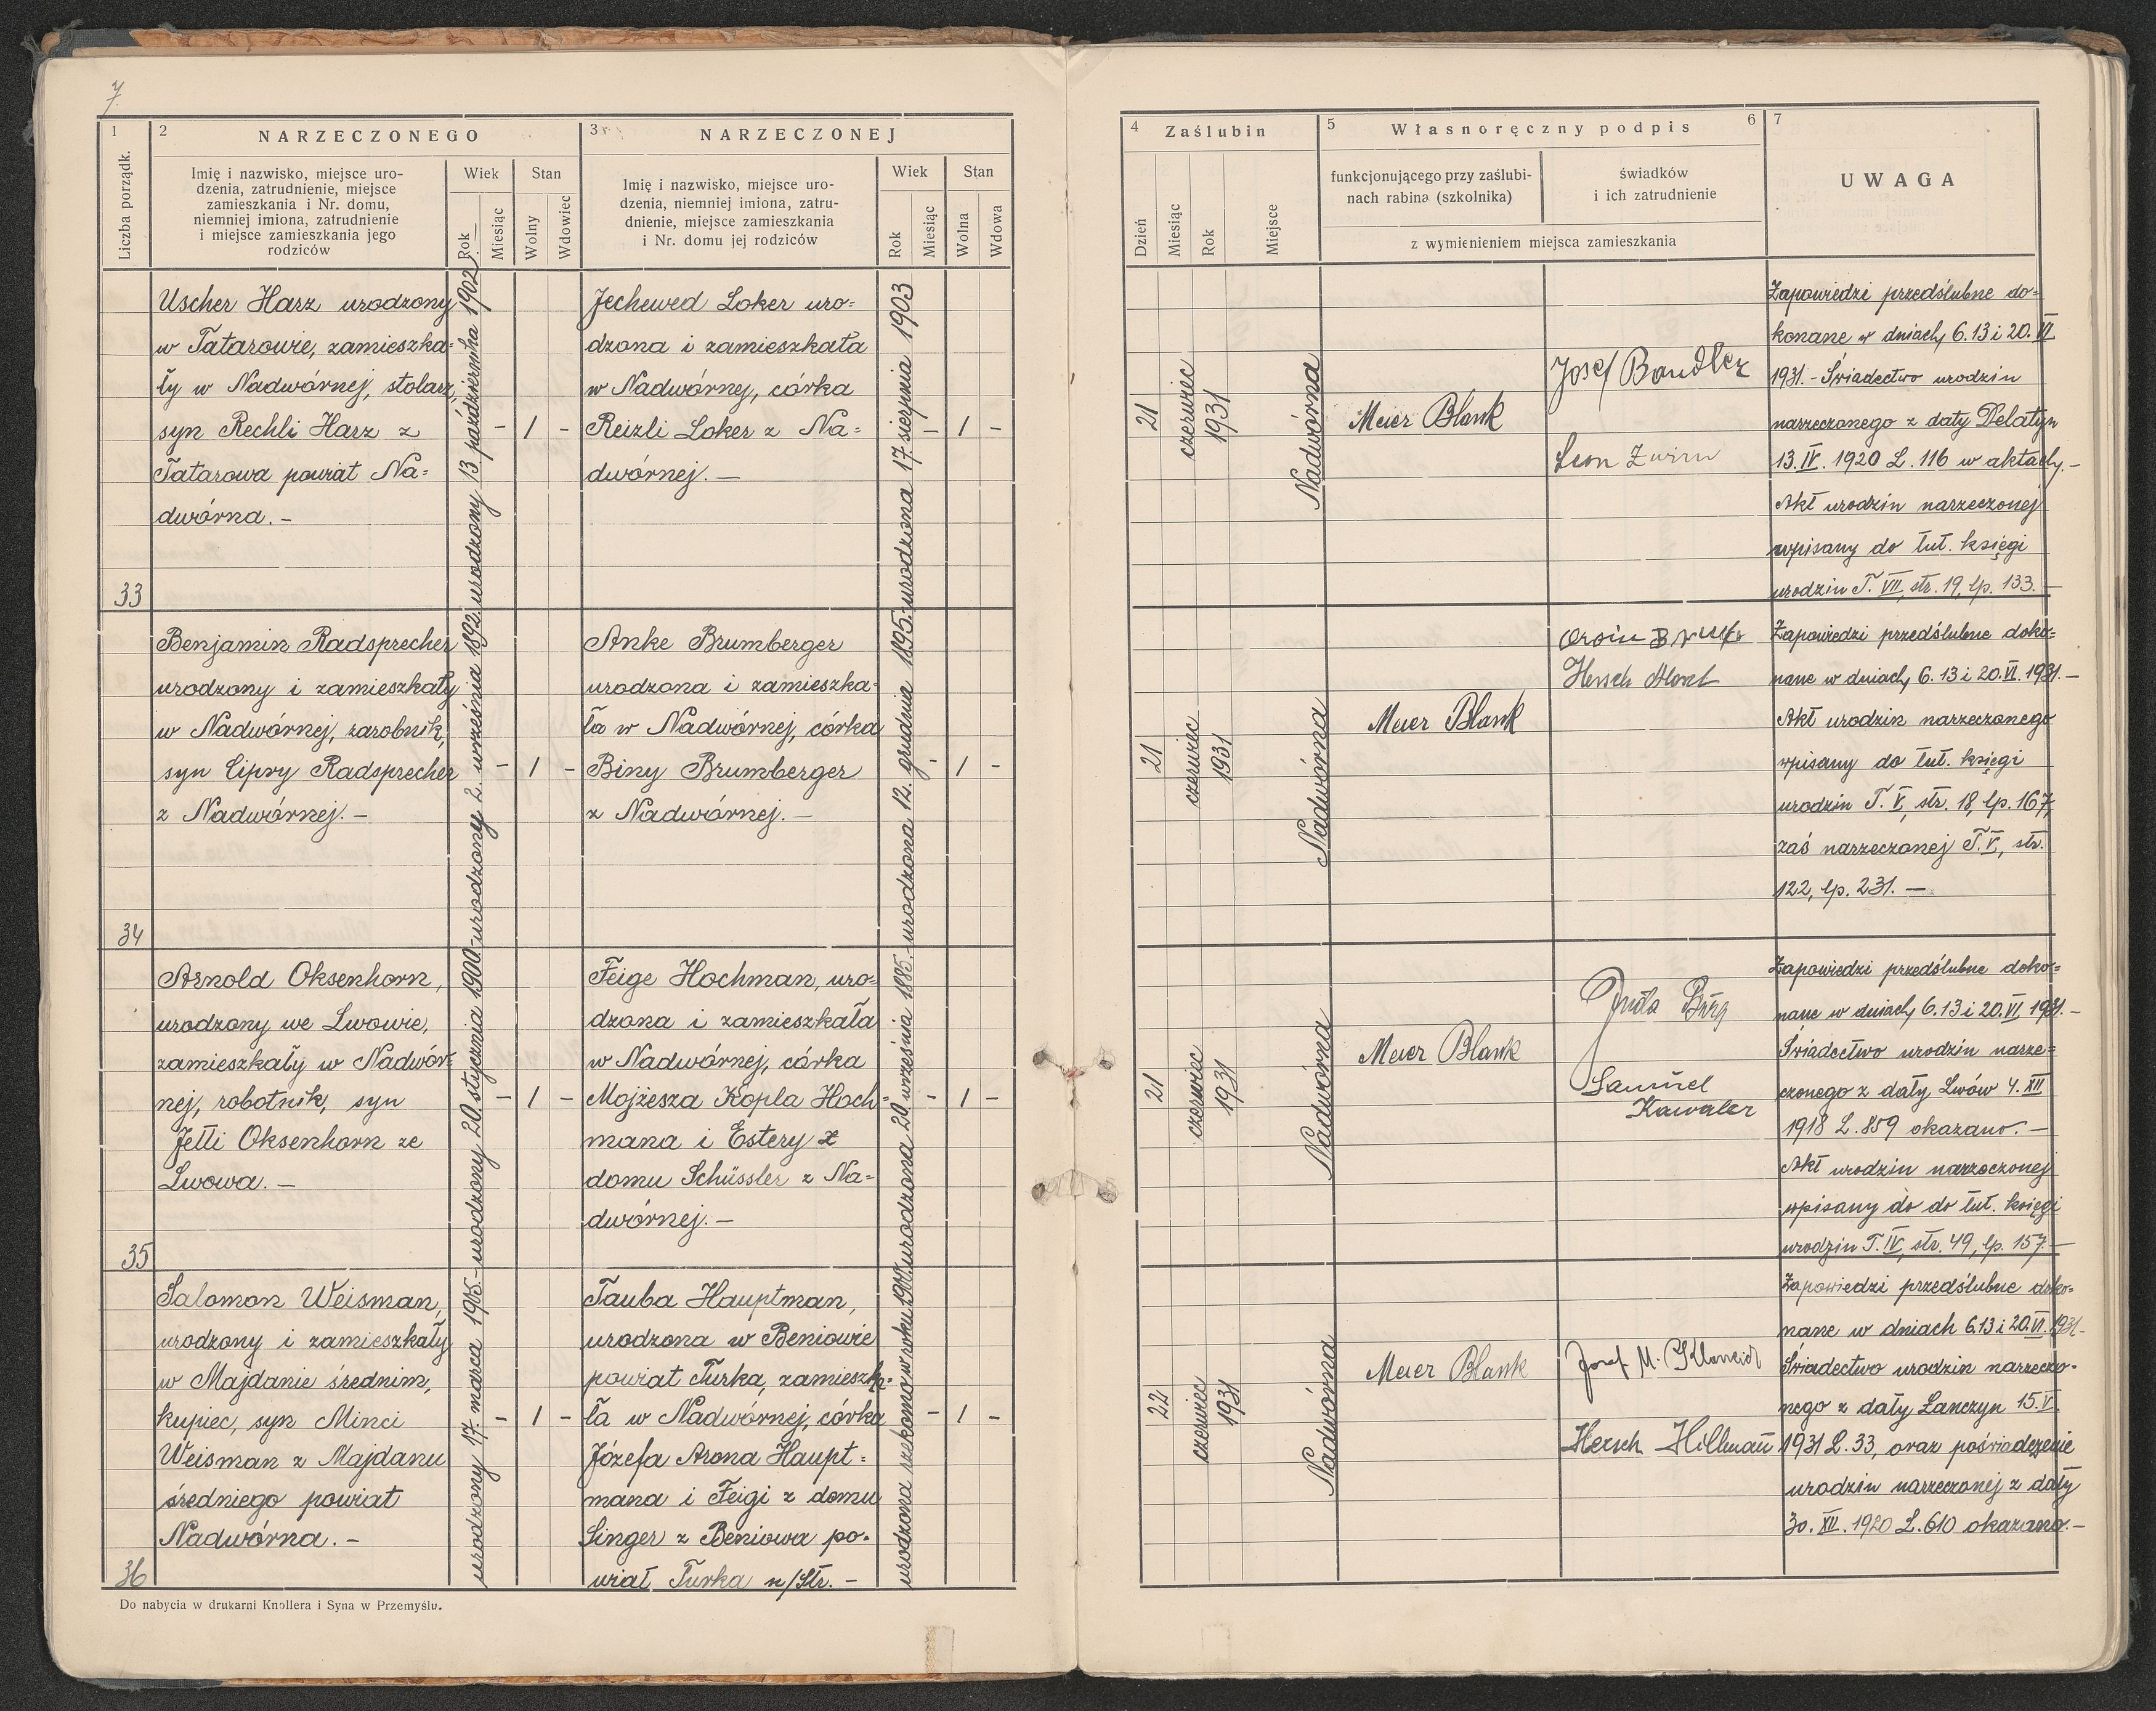 7
1
2
NARZECZONEGO
3
NARZECZONEJ
Liczba porządk.
Imię i nazwisko, miejsce uro-
dzenia, zatrudnienie, miejsce
zamieszkania i Nr. domu,
niemniej imiona, zatrudnienie
i miejsce zamieszkania jego
rodziców
Wiek
Stan
Rok
Miesiąc
Wolny
Wdowiec
Imię i nazwisko, miejsce uro-
dzenia, niemniej imiona, zatru-
dnienie, miejsce zamieszkania
i Nr. domu jej rodziców
Wiek
Stan
Rok
Miesiąc
Wolna
Wdowa
4
Zaślubin
5
Własnoręczny podpis
6
7
Dzień
Miesiąc
Rok
Miejsce
funkcjonującego przy zaślubi-
nach rabina (szkolnika)
świadków
i ich zatrudnienie
z wymienieniem miejsca zamieszkania
UWAGA
33
Uscher Harz urodzony
w Tatarowie, zamieszka=
ły w Nadwórnej, stolarz,
syn Rechli Harz z
Tatarowa powiat Na=
dwórna. –
urodzony 13 października 1902.
– 1 –
Jechewed Loker uro=
dzona i zamieszkała
w Nadwórnej, córka
Reizli Loker z Na=
dwórnej. –
urodzona 17 sierpnia 1903
– 1 –
21
czerwiec
1931
Nadwórna
Meier Blank
Josef Bandler
Leon
Zapowiedzi przedślubne do=
konane w dniach 6. 13 i 20. VI
1931. – Świadectwo urodzin
narzeczonego z daty Delatyn
13. IV. 1920 L. 116 w aktach. –
Akt urodzin narzeczonej
wpisany do tut. księgi
urodzin T. VII, str. 19, lp. 133. –
34
Benjamin Radsprecher
urodzony i zamieszkały
w Nadwórnej, zarobnik,
syn Cipry Radsprecher
z Nadwórnej. –
urodzony 2. września 1892.
– 1 –
Anke Brumberger
urodzona i zamieszka=
ła w Nadwórnej, córka
Biny Brumberger
z Nadwórnej. –
urodzona 12. grudnia 1895.
– 1 –
21
czerwiec
1931
Nadwórna
Meier Blank
Hersch
Zapowiedzi przedślubne doko=
nane w dniach 6. 13 i 20. VI. 1931. –
Akt urodzin narzeczonego
wpisany do tut. księgi
urodzin T. V, str. 18, lp. 167,
zaś narzeczonej T. V, str.
122, lp. 231. –
35
Arnold Oksenhorn,
urodzony we Lwowie,
zamieszkały w Nadwór=
nej, robotnik, syn
Jetti Oksenhorn ze
Lwowa. –
urodzony 20. stycznia 1900.
– 1 –
Feige Hochman, uro=
dzona i zamieszkała
w Nadwórnej, córka
Mojżesza Kopla Hoch=
mana i Estery z
domu Schüssler z Na=
dwórnej. –
urodzona 20 września 1885.
– 1 –
21
czerwiec
1931
Nadwórna
Meier Blank
Samuel
Kawaler
Zapowiedzi przedślubne doko=
nane w dniach 6. 13 i 20. VI 1931. –
Świadectwo urodzin narze=
czonego z daty Lwów 4. XII
1918 L. 859 okazano. –
Akt urodzin narzeczonej
wpisany do do tut. księgi
urodzin T. IV, str. 49, lp. 157 –
36
Salomon Weisman,
urodzony i zamieszkały
w Majdanie średnim,
kupiec, syn Minci
Weisman z Majdanu
średniego powiat
Nadwórna. –
urodzony 17. marca 1905. –
– 1 –
Tauba Hauptman,
urodzona w Beniowie
powiat Turka, zamieszka=
ła w Nadwórnej, córka
Józefa Arona Haupt=
mana i Feigi z domu
Singer z Beniowa po=
wiat Turka n/Str. –
urodzona rzekomo w roku
– 1 –
22
czerwiec
1931
Nadwórna
Meier Blank
Josef M.
Hersch Hillman
Zapowiedzi przedślubne doko=
nane w dniach 6. 13 i 20. VI. 1931. –
Świadectwo urodzin narzeczo=
nego z daty Lanczyn 15. V.
1931 L. 33, oraz poświadczenie
urodzin narzeczonej z daty
30. XII. 1920 L. 610 okazano. –
Do nabycia w drukarni Knollera i Syna w Przemyślu.